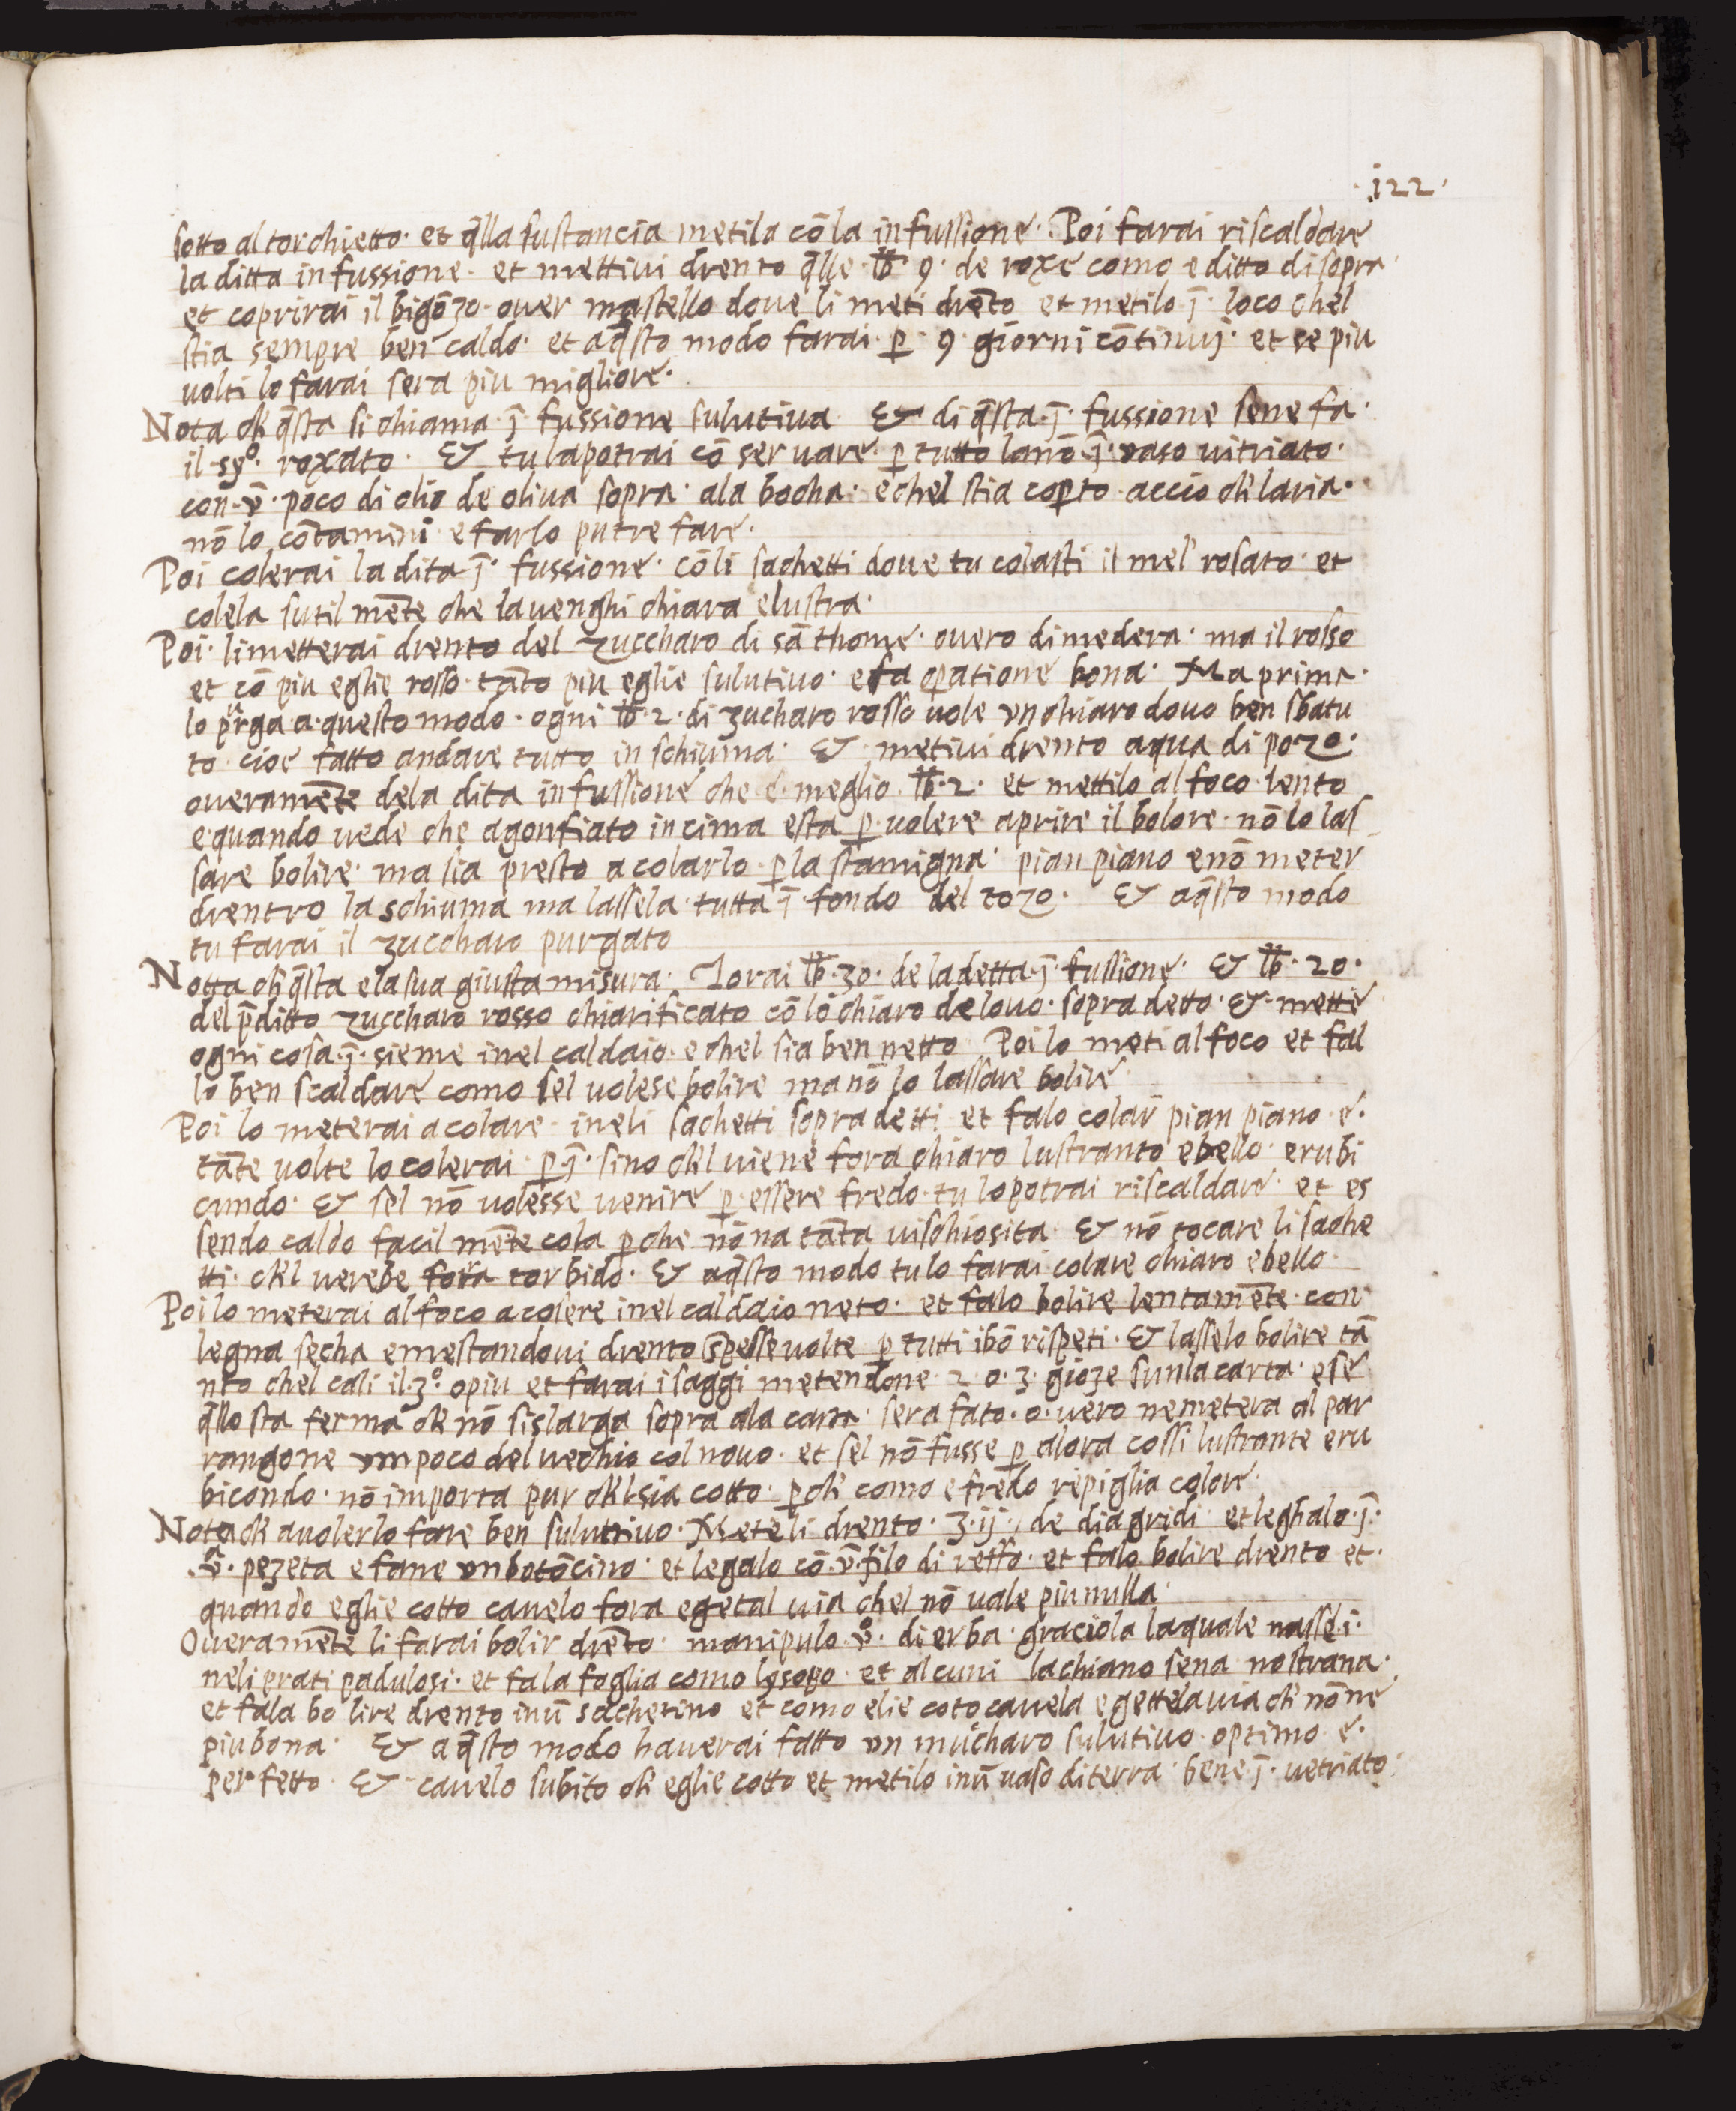 .i22.
sotto al torchietto. et q̄lla sustancia metila cō la infussione. Poi farai riscaldare
la ditta infussione. et mettivi drento q̄lle ℔ 9. de roxe como e ditto di sopra
et coprirai il bigōzo. over mastello dove li meti drēto et metilo .j̄. loco chel
stia sempre ben caldo. et aq̄sto modo farai. ꝑ 9 giorni cōtinuij. et se piu
volti lo farai sera piu migliore.
Nota ch̄ q̄sta si chiama .j̄. fussione sulutiva & di q̄sta .j̄. fussione sene fa.
il syº. roxato. & tu lapotrai cō servare. ꝑ tutto lanō .j̄. vaso vitriato.
con .v̄. poco di olio de oliva sopra. ala bocha. echel stia coꝑto accio ch̄ laria.
nō lo cōtamini e farlo putrefare.
Poi colerai la dita .j̄. fussione. cō li sachetti dove tu colasti il mel rosato. et
colela sutil mēte che la venghi chiara elustra.
Poi. li metterai drento del zuccharo di sā thome. overo di medera. ma il rosso
et cō piu eglie rosso. tāto piu eglie sulutivo. e fa oꝑatione bona. Ma prima.
lo purga a questo modo. ogni ℔ 2. di zucharo rosso vole un chiaro dovo ben sbatu
to. cioe fatto andare tutto in schiuma. & metivi drento aqua di pozo.
overamēte dela dita infussione che e. meglio ℔. 2. et mettilo al foco lento
e quando vede che agonfiato in cima esta ꝑ volere aprire il bolore. nō lo las
sare bolire. ma sia presto a colarlo. ꝑ la stamigna. pian piano enō meter
drentro la schiuma ma lassela tutta .j̄. fondo del zozo. & aq̄sto modo
tu farai il zuccharo purgato
Notta ch̄ q̄sta ela sua giusta misura. Torai ℔. 30. de la detta .j̄. fussione. & ℔. 20.
del p̄ditto zuccharo rosso chiarificato cō lo chiaro de lovo. sopra detto. & mette
ogni cosa .j̄. sieme inel caldaio. e chel sia ben netto Poi lo meti al foco et fal
lo ben scaldare como sel volese bolire ma nō lo lassare bolire
Poi lo meterai a colare. ineli sachetti sopra detti et falo colar pian piano. e.
tāte volte lo colerai. ꝑ .j̄. sino ch̄l viene fora chiaro lustranto ebello. erubi
cundo. & sel nō volesse venire ꝑ essere fredo. tu lo potrai riscaldare. et es
sendo caldo facil mēte cola ꝑche nō na tāta vischiosita & nō tocare li sache
tti. ch̄l verebe fora torbido. & aq̄sto modo tu lo farai colare chiaro ebello.
Poi lo meterai al foco a cosere inel caldaio neto. et falo bolire lentamēte. con
legna secha emestandovi drento spesse volte ꝑ tutti ibō rispeti. & lasselo bolire tā
nto chel cali il .3º. opiu et farai i saggi metendone 2 o. 3. gioze sunla carta. ese
q̄llo sta ferma ch̄ nō si slarga sopra ala carta. sera fato. o. vero nemetera al par
rangone un poco del vechio col novo. et sel nō fusse ꝑ alora cossi lustrante eru
bicondo. nō importa pur ch̄l sia cotto. ꝑch̄ como e fredo ripiglia colore.
Nota ch̄ avolerlo fare ben sulutivo. Meteli drento. ʒ. ij. de diagridi et leghalo .j̄.
.v̄. pezeta e fane un botōcino. et legalo cō .v̄. filo di reffo. et falo bolire drento et.
quando eglie cotto cavelo fora egetal via chel nō vale piu nulla.
Overamēte li farai bolir drēto. manipulo .vº. di erba. graciola laquale nasse .i.
neli prati padulosi. et fa la foglia como lysopo. et alcuni lachiano sena nostrana.
et falla bo lire drento inū sacherino et como elie coto cavela egettela via ch̄ nō ne
piu bona. & aq̄sto modo haverai fatto un mucharo sulutivo. optimo. e.
perfetto. & cavelo subito ch̄ eglie cotto et metilo inū vaso di terra. bene .j̄. vetriato.